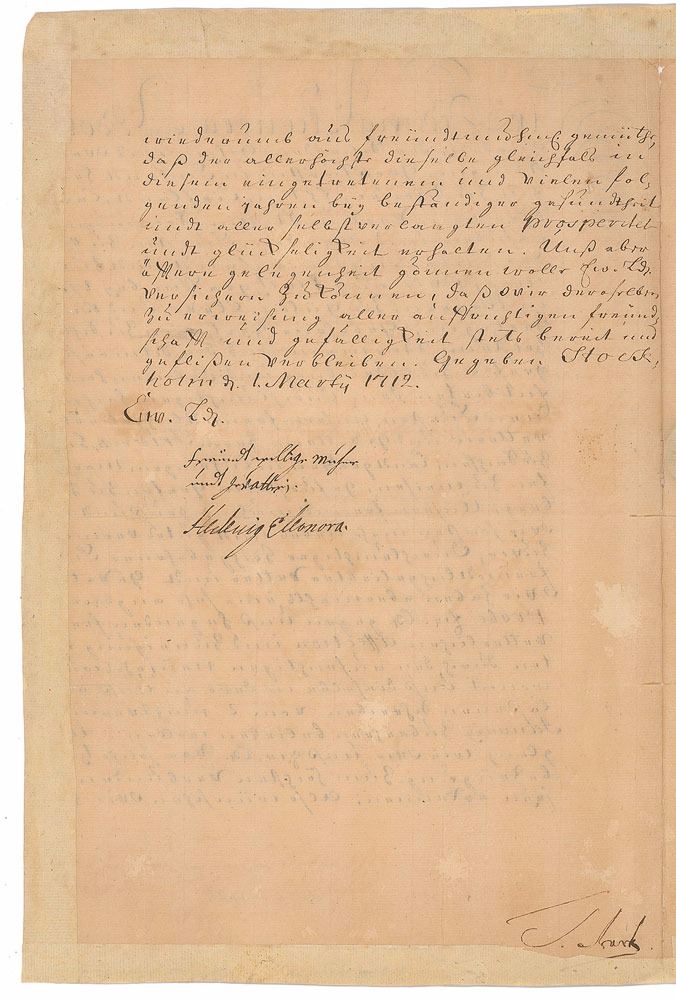 wiederumb aus freündtmuhml. gemüthe,
daß der allerhöchste dieselbe gleichfals in
diesem eingetretenem und vielen fol-
genden jahren beÿ beständiger gesundtheit
undt aller selbstverlangten prosperitet
undt glückseligkeit erhalten. Unß aber
öfftere gelegenheit gönnen wolle Ew. Ld.
versichern zu können, daß wir deroselben
zu erweisung aller auffrichtigen freund-
schafft und gefälligkeit stets bereit und
geflißen verbleiben. Gegeben Stock-
holm d. 1. Martÿ 1712.
Ew. Ld.
freündtwillige Muhme
undt
Hedwig Eleonora.